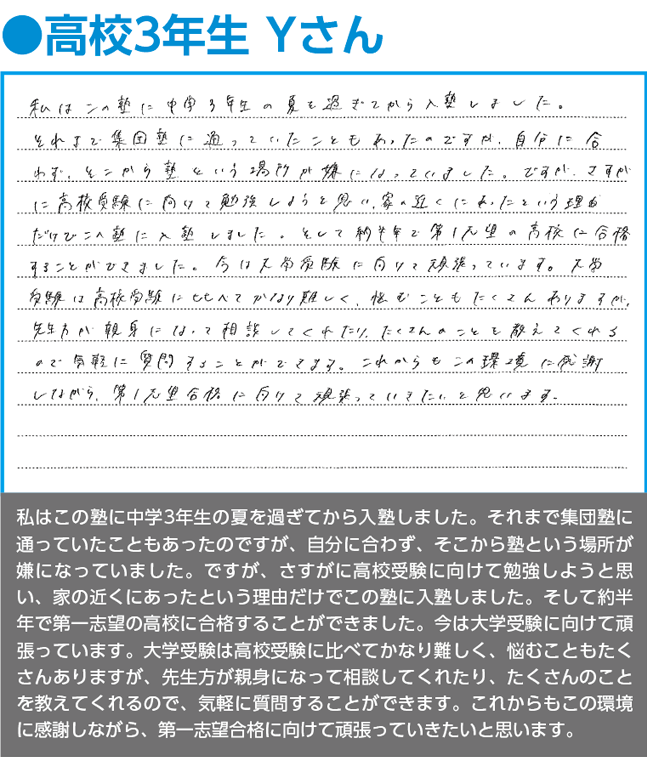 ●高校3年生 Yさん
私はこの塾に中学3年生の夏を過ぎてから入塾しました。
それまで集団塾に通っていたこともあったのですが、自分に合
わず、そこから塾という場所が嫌になっていました。ですが、さすが
に高校受験に向けて勉強しようと思い、家の近くにあったという理由
だけでこの塾に入塾しました。そして約半年で第1志望の高校に合格
することができました。今は大学受験に向けて頑張っています。大学
受験は高校受験に比べてかなり難しく、悩むこともたくさんありますが、
先生方が親身になって相談してくれたり、たくさんのことを教えてくれる
ので気軽に質問することができます。これからもこの環境に感謝
しながら、第1志望合格に向けて頑張っていきたいと思います。
私はこの塾に中学3年生の夏を過ぎてから入塾しました。それまで集団塾に
通っていたこともあったのですが、自分に合わず、そこから塾という場所が
嫌になっていました。ですが、さすがに高校受験に向けて勉強しようと思
い、家の近くにあったという理由だけでこの塾に入塾しました。そして約半
年で第一志望の高校に合格することができました。今は大学受験に向けて頑
張っています。大学受験は高校受験に比べてかなり難しく、悩むこともたく
さんありますが、先生方が親身になって相談してくれたり、たくさんのこと
を教えてくれるので、気軽に質問することができます。これからもこの環境
に感謝しながら、第一志望合格に向けて頑張っていきたいと思います。